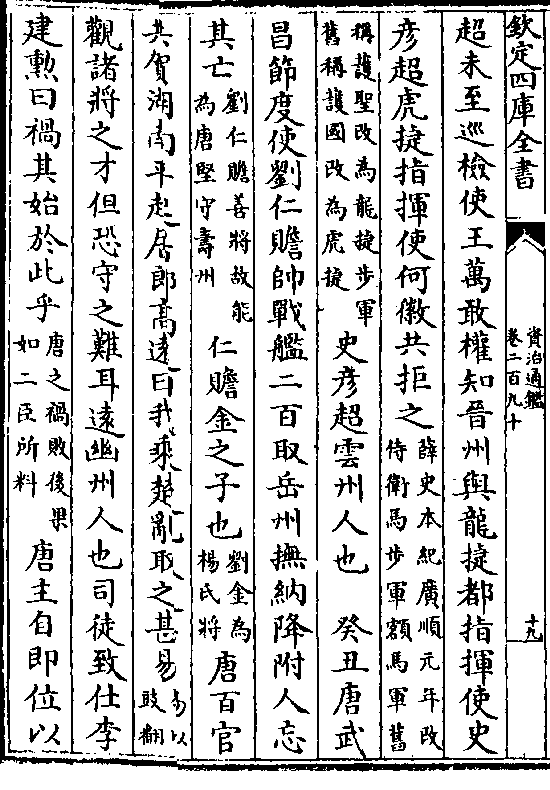 欽定四庫全書
資治通鑑
卷二百九十
十九
超未至巡檢使王萬敢權知晉州與龍捷都指揮使史
彦超虎捷指揮使何徽共拒之
薛史本紀廣順元年改
侍衛馬步軍額馬軍舊
稱護聖改為龍捷步軍
舊稱護國改為虎捷
史彦超雲州人也　癸丑唐武
昌節度使劉仁贍帥戰艦二百取岳州撫納降附人忘
其亡
劉仁贍善將故能
為唐堅守壽州
仁贍金之子也
劉金為
楊氏將
唐百官
共賀湖南平起居郎高遠曰我乘楚亂取之甚易
易以
豉翻
觀諸將之才但恐守之難耳遠幽州人也司徒致仕李
建勲曰禍其始於此乎
唐之禍敗後果
如二臣所料
唐主自即位以